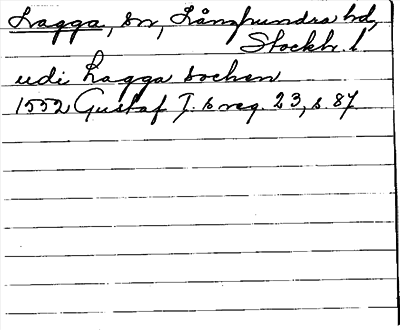 Lagga, sn, Långhundra hd,
Stockh. l
udi Lagga sochen
1552 Gustaf I:s reg. 23, s. 87